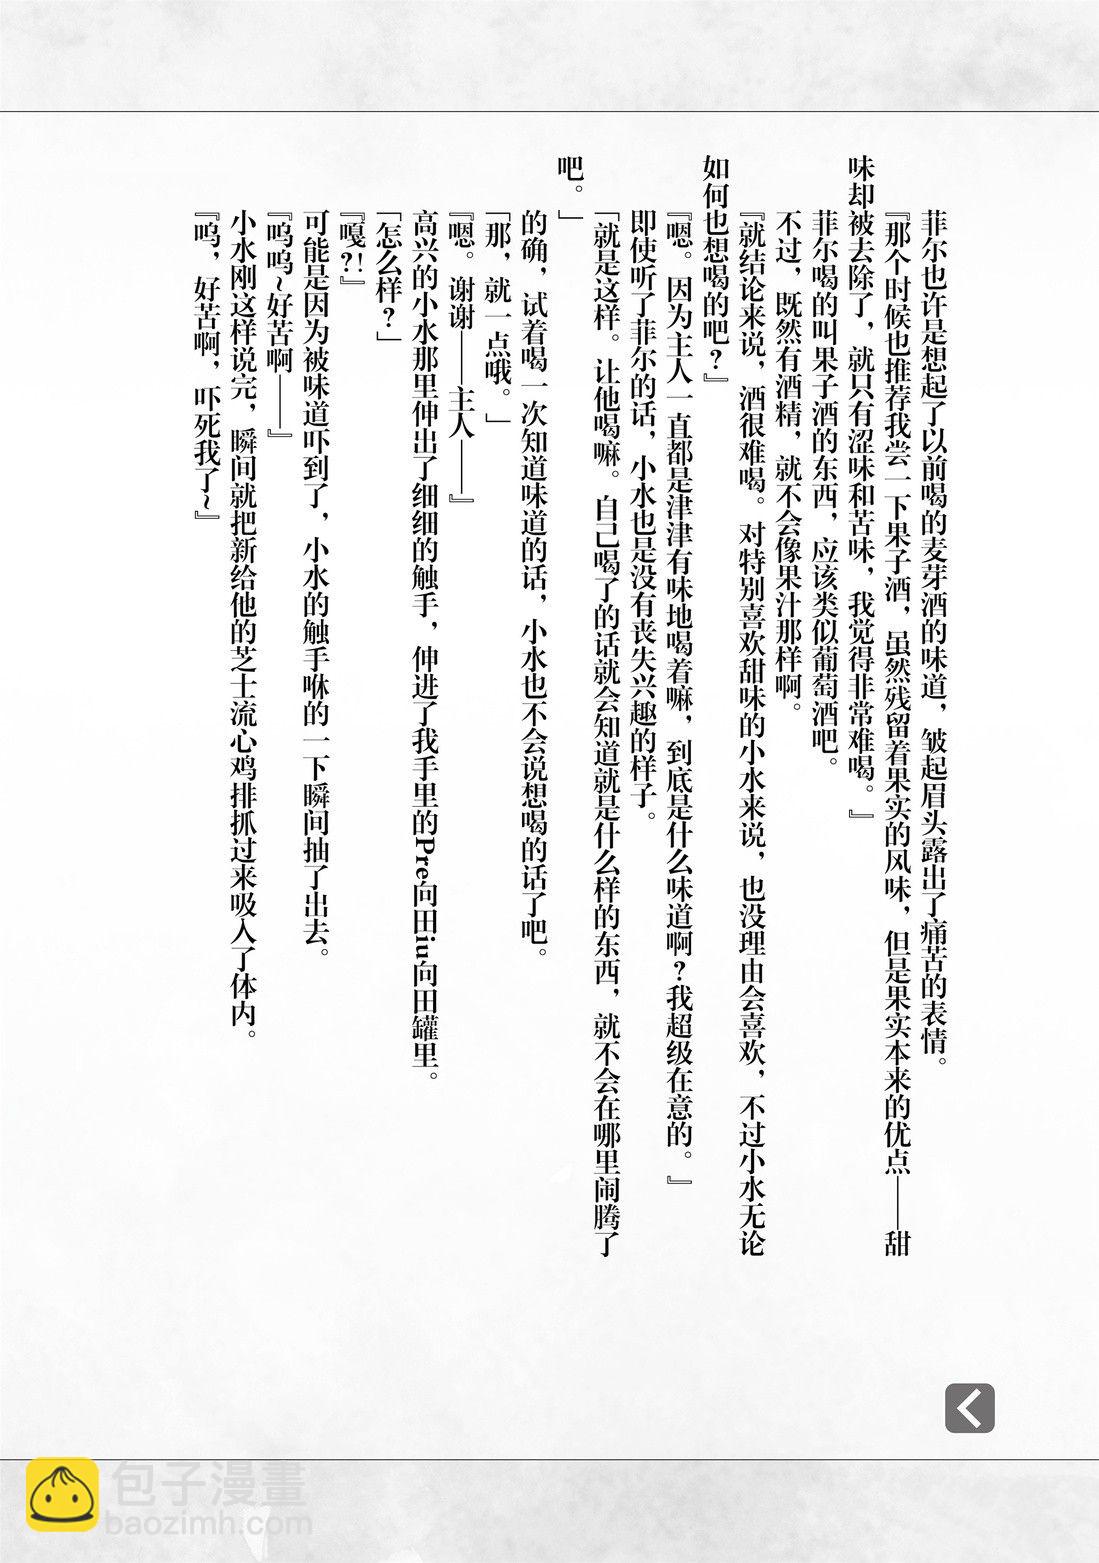 菲尔也许是想起了以前喝的麦芽酒的味道，皱起眉头露出了痛苦的表情。
『那个时候也推荐我尝一下果子酒，虽然残留着果实的风味，但是果实本来的优点——甜
味却被去除了，就只有涩味和苦味，我觉得非常难喝。』
菲尔喝的叫果子酒的东西，应该类似葡萄酒吧。
不过，既然有酒精，就不会像果汁那样啊。
『就结论来说，酒很难喝。对特别喜欢甜味的小水来说，也没理由会喜欢，不过小水无论
如何也想喝的吧?』
『嗯。因为主人一直都是津津有味地喝着嘛，到底是什么味道啊?我超级在意的。』
即使听了菲尔的话，小水也是没有丧失兴趣的样子。
「就是这样。让他喝嘛。自己喝了的话就会知道就是什么样的东西，就不会在哪里闹腾了
吧。」
的确，试着喝一次知道味道的话，小水也不会说想喝的话了吧。
「那，就一点哦。」
『嗯。谢谢——主人——』
高兴的小水那里伸出了细细的触手，伸进了我手里的Pre向田iu向田罐里。
「怎么样?」
『嘎?!』
可能是因为被味道吓到了，小水的触手咻的一下瞬间抽了出去。
『呜呜~好苦啊——』
小水刚这样说完，瞬间就把新给他的芝士流心鸡排抓过来吸入了体内。
『呜，好苦啊，吓死我了~』
包子漫畫
baozimh.com